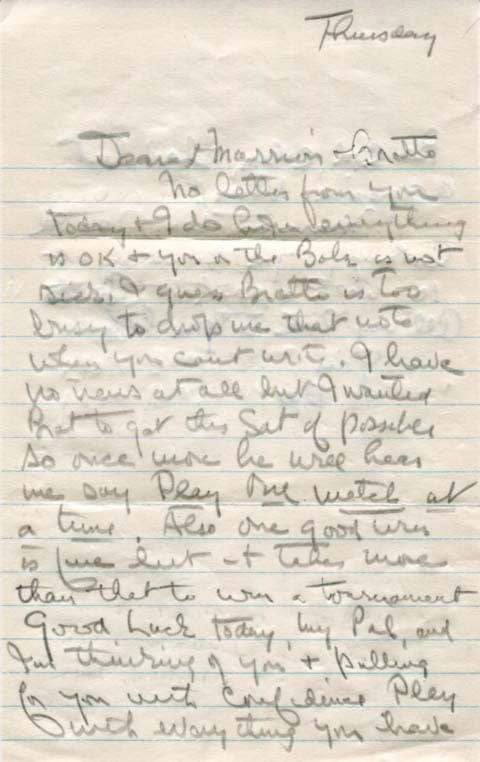 Thursday
Dearest Marrion + Bratto
No letter from you
today + I do hope everything
is OK + you or the Babe is not
sick. I guess Bratto is too
busy to drop me that note
when you cant write. I have
no news at all but I wanted
Brat to get this Sat if possible
so once more he will hear
me say Play One match at
a time. Also one good win
is fine but it takes more
than that to win a tournament
Good Luck today, my Pal, and
Im thinking of you + pulling
for you with confidence Play
with everything you have